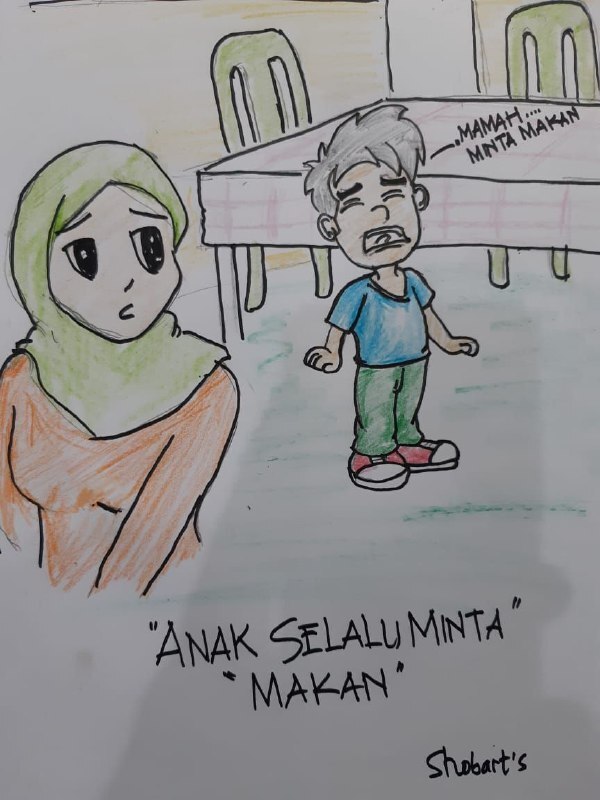 MAMAH....
MINTA MAKAN
"ANAK SELALU MINTA"
"MAKAN"
Shobart's